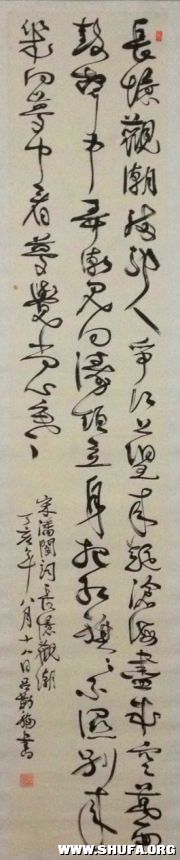 長憶觀潮滿郭人爭江上望來疑滄海盡成空萬面
鼓聲中弄潮兒向濤頭立手把紅旗〻不濕別來
幾向夢中看夢覺尚心寒
宋潘閬詞長憶觀潮
丁亥年八月十八日呂書
WWW.SHUFA.ORG